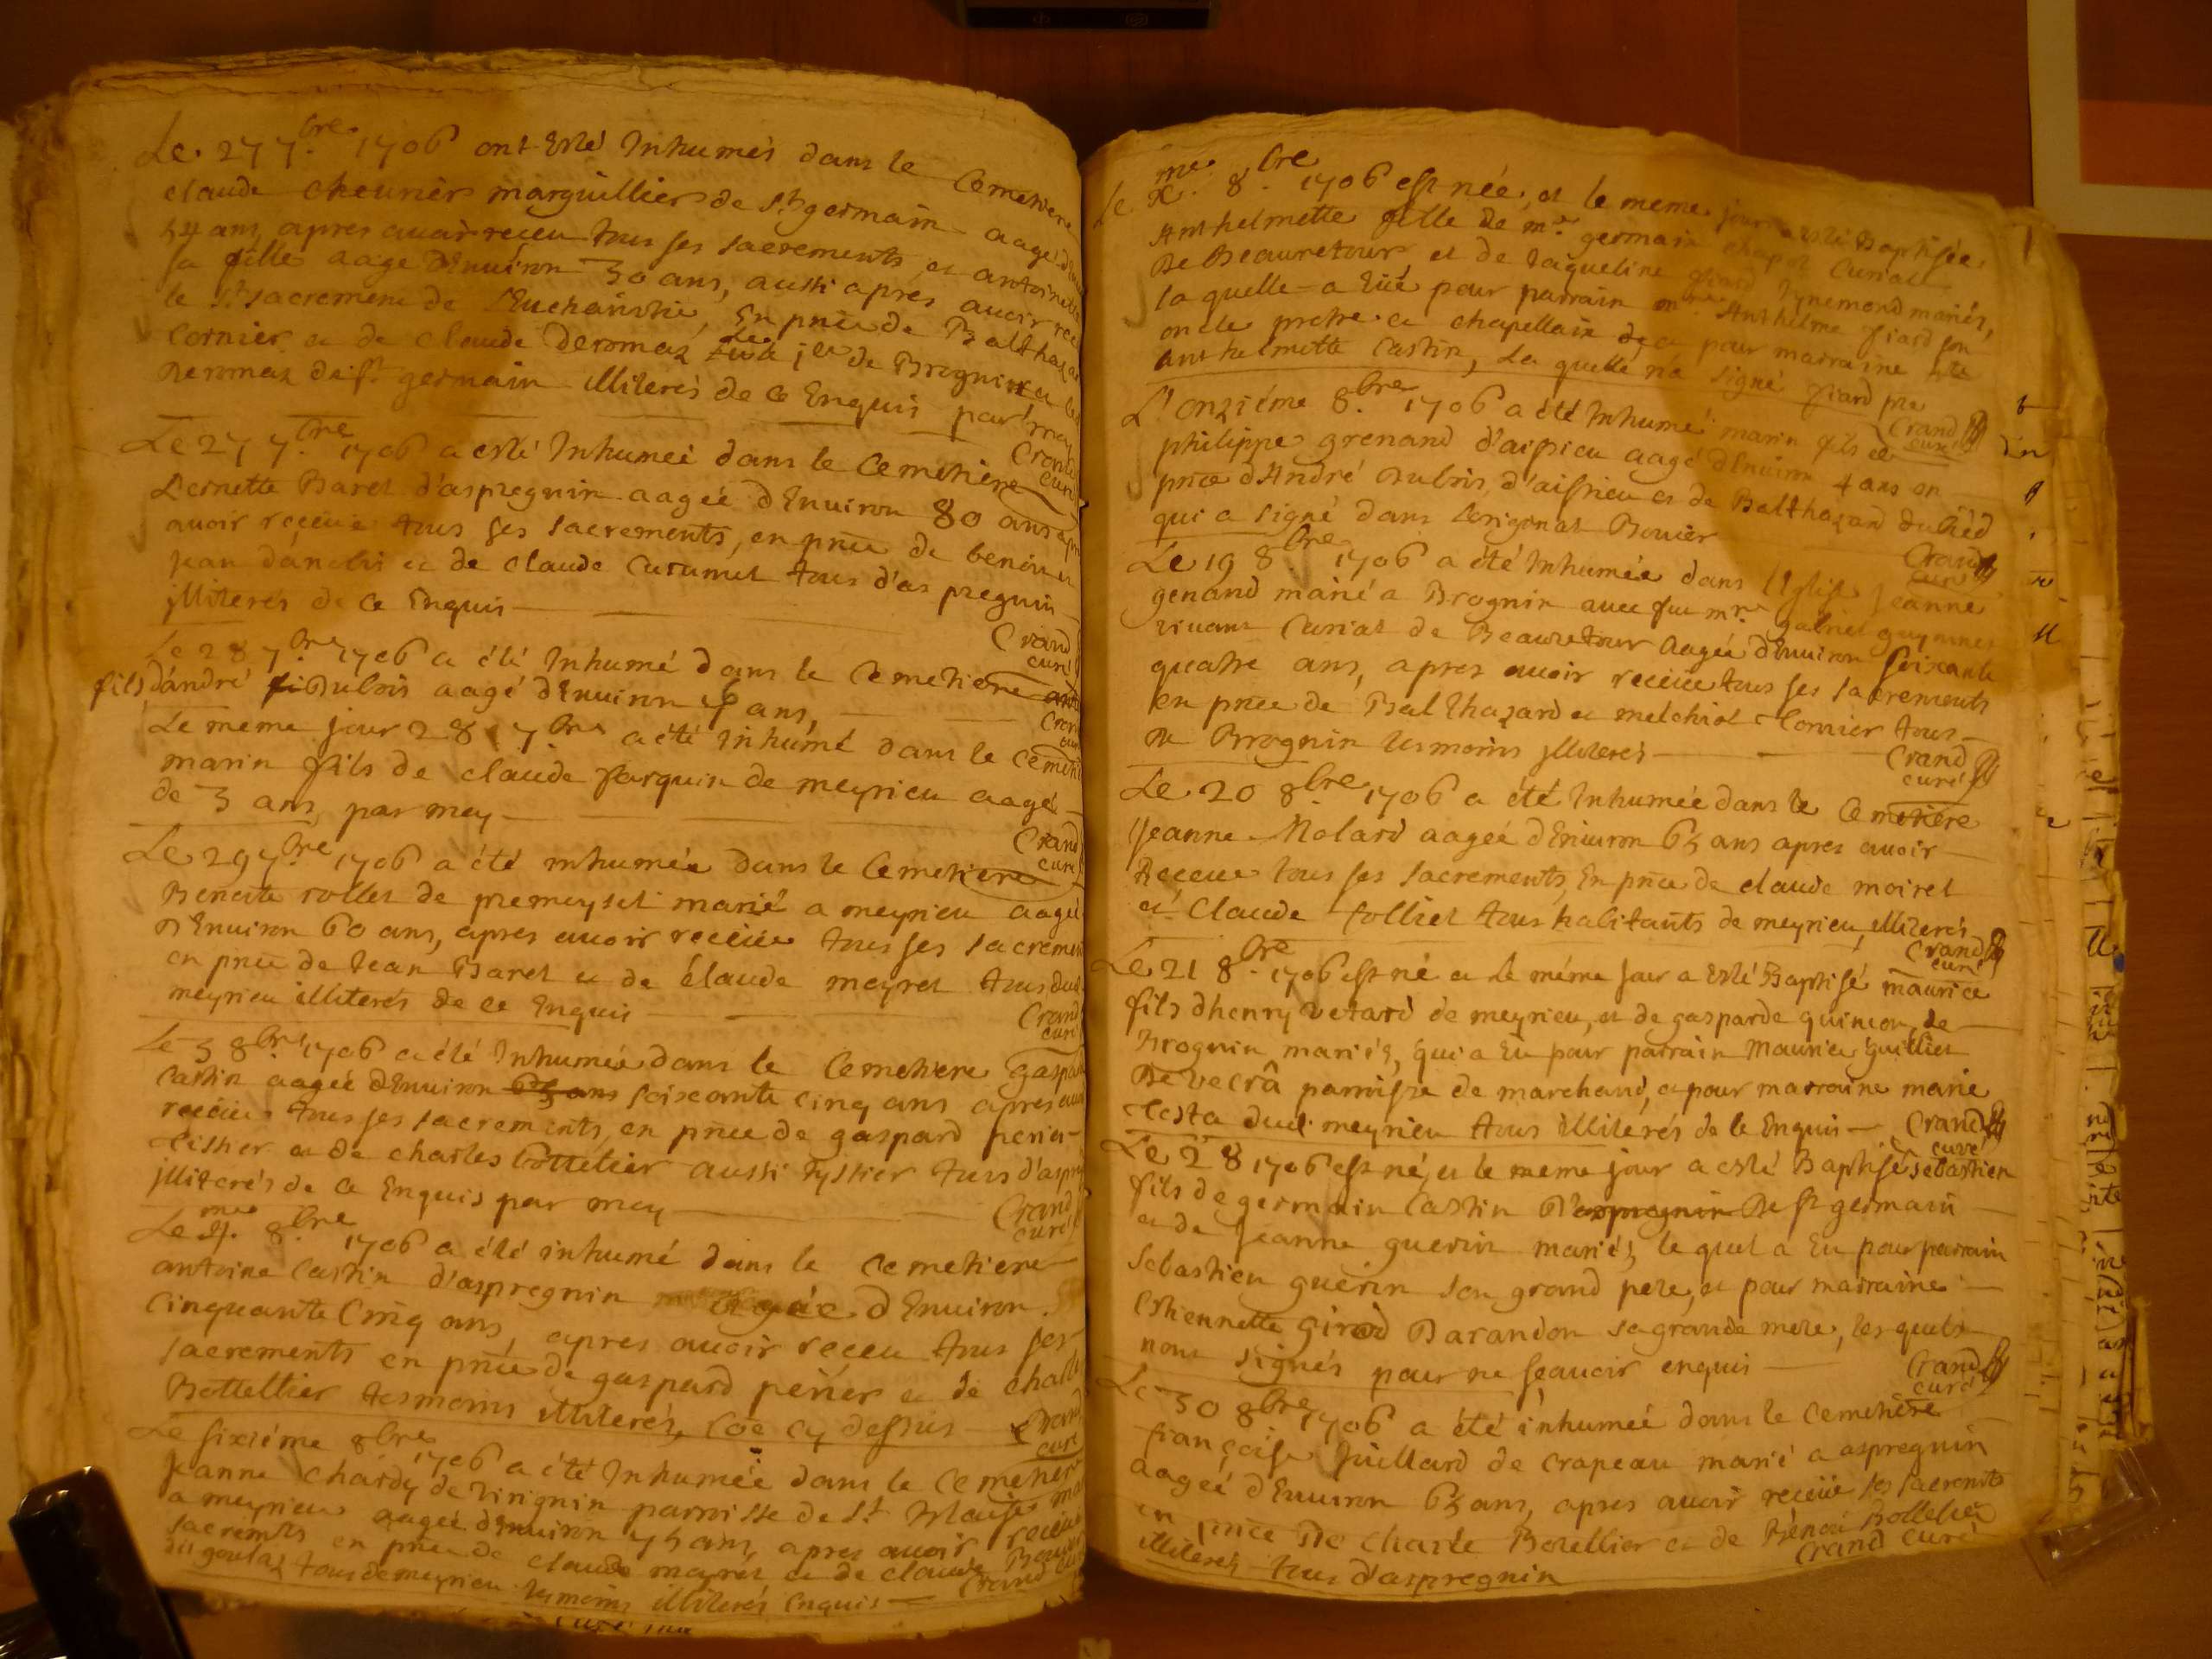 Le 27 7.bre 1706 ont Esté Inhumés dans le Cemetiere
claude cheurier marguillier de st germain aagé
54 ans, apres auoir receu tous ses sacrements, et antoinette
sa fille aage dEnuiron 30 ans, aussi apres auoir rec
le st sacrement de l'Eucharistie, En pñce de Balthaza
Cornier et de claude Deromaz de Brognin et
Deromaz de st germain illiterés de ce Enquis par moy
Crand curé
Le 27 7.bre 1706 a esté Inhumeé dans le Cemetiere
Pernette Baret d'aspregnin aagée dEnuiron 80 ans apr
auoir receüe tous ses sacrements, en pñce de benoi et
jean et de claude Curumet tous d'aspregnin
illiterés de ce Enquis
Crand curé
Le 28 7.bre 1706 a été Inhumé dans le Cemetiere
fils d'andré Dubois aagé dEnuiron ans,
Crand curé
Le meme jour 28 7.bre a été inhumé dans le cemeti
marin fils de claude parquin de meyrieu aagé
de 3 ans, par moy
Crand curé
Le 29 7.bre 1706 a été inhumée dans le Cemetiere
Benoite rollet de premeyset marié a meyrieu aageé
dEnuiron 60 ans, apres auoir receüe tous ses sacremen
en pñce de Jean Baret et de claude meyret tous dud
meyrieu illiterés de ce Enquis
Crand curé
Le 3 8.bre 1706 a été Inhumée dans le Cemetiere gaspa
Castin aagée dEnuiron 65 ans soixcante cinq ans apres auoi
receüe tous ses sacrements, en pñce de gaspard perier
tissier et de charles bottelier aussi tyssier tous d'aspr
illiterés de ce Enquis par moy
Crand curé
Le 8.bre 1706 a été inhumé dans le cemetiere
antoine Castin d'aspregnin agée d'Enuiron
Cinquante Cinq ans, apres auoir receu tous ses
sacrements en pñce de gaspard perier et de challe
Bottellier tesmoins illiterés, cõe cy dessus
Crand curé
Le sixiéme 8bre 1706 a été Inhumée dans le Cemetier
Jeanne chardy de virignin parroisse de st blaise ma
a meyrieu aageé dEnuiron 45 ans, apres auoir receüe
sacremts en pñce de claude mayret et de claude Bouuier
dit goulaz tous de meyrieu tesmoins illiterés Enquis
Crand curé
Le x.me 8.bre 1706 est née, et le meme jour a esté Baptisée
Anthelmette fille de mr germain chapot Curial
de Beauretour et de Jaqueline fiard Dynemond mariés,
la quelle a Eüe pour parrain mre Anthelme fiard son
oncle pretre et chapellain de, et pour marraine
anthelmette Castin, la quelle n'a signé fiard pre
Crand curé
L'onziéme 8.bre 1706 a été Inhumé marin fils de
philippe grenand d'aisrieu aagé dEnuiron 4 ans en
pñce d'André Dubois, d'aisrieu et de Balthazard dubied
qui a signé dans l'original Bouier
Crand curé
Le 19 8.bre 1706 a été Inhumée dans lEglise Jeanne
genand marié a Brognin auec feu mr gabriel guynnet
viuant Curial de Beauretour aagée dEnuiron soixante
quatre ans, apres auoir receüe tous ses sacrements
en pñce de Balthazard et melchiol Cornier tous
de Brognin tesmoins illiterés
Crand curé
Le 20 8.bre 1706 a été Inhumée dans le Cemetiere
Jeanne Molard aageé dEnuiron 65 ans apres auoir
Receue tous ses sacrements, En pñce de claude moiret
et Claude folliet tous habitants de meyrieu, illiterés
Crand curé
Le 21 8.bre 1706 est né et le méme jour a esté Baptisé maurice
fils dhenry vetard de meyrieu, et de gasparde quinson, de
Brognin mariés, qui a Eu pour parrain Maurice guillet
De vecrâ parroisse de marchand, et pour marraine marie
Testa dud. meyrieu tous illiterés de le Enquis
Crand curé
Le 28 1706 est né, et le meme jour a esté Baptisé sebastien
fils de germain Castin D'aspregnin De st germain
et de Jeanne guerin mariés, le quel a Eu pour parrain
Sebastien guerin son grand pere, et pour marraine
Estiennette girod Barandon sa grande mere, les quels
nont signés pour ne sçauoir enquis
Crand curé
Le 30 8.bre 1706 a été inhumeé dans le Cemetiere
françoise Juillard de Crapeau marié a aspregnin
aageé dEnuiron 65 ans, apres auoir receüe ses sacremts
en pñce de Charle Botellier et de Benoi bottelier
illiterés tous d'aspregnin
Crand Curé